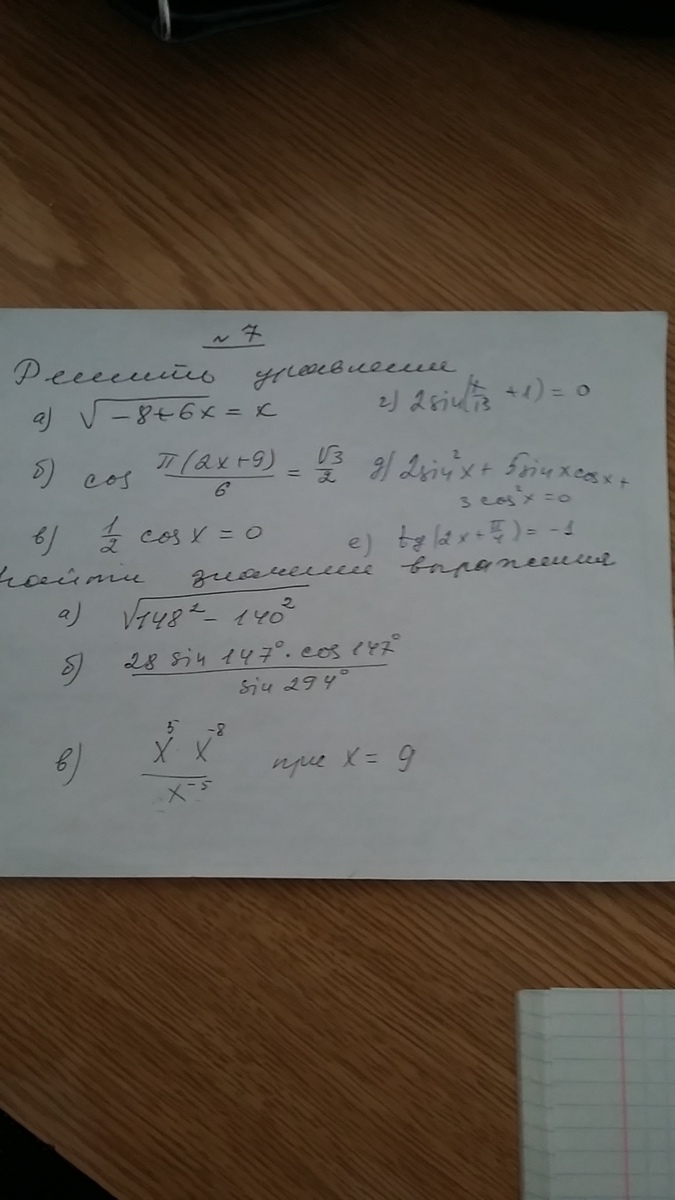 № 7
Решить уравнения
а) √(-8+6x) = x
г) 2sin(x/13 + 1) = 0
б) cos π(2x+9)/6 = √3/2
д) 2sin²x + 5sinxcosx +
3cos²x = 0
в) 1/2 cosx = 0
е) tg(2x+π/4) = -1
найти значение выражения
а) √(148² - 140²)
б) 28 sin 147° · cos 147° / sin 294°
в) x⁵ x⁻⁸ / x⁻⁵ при x = 9